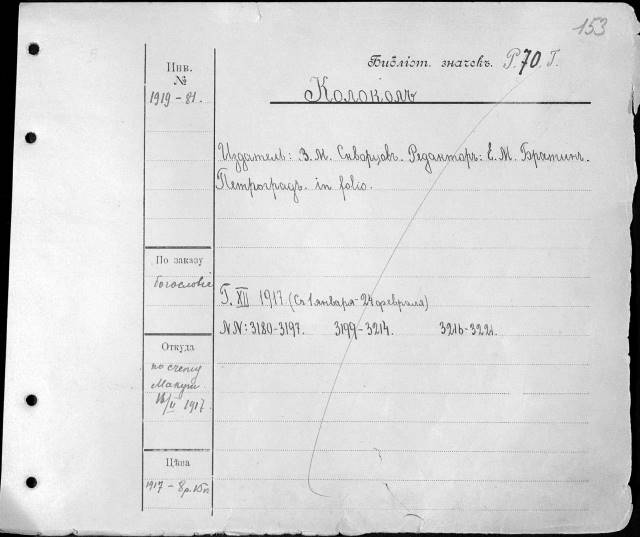 153
Библіот. значекъ. Р.70.Г.
Инв.
№
1919 - 81.
Колоколъ
Издатель: З. М. Скварцовъ. Редакторъ: Е. М. Братинъ.
Петроградъ. in folio.
По заказу
богословіе
Г. XII 1917. (Съ 1 января - 24 февраля)
NN: 3180-3197. 3199-3214. 3216-3221.
Откуда
по счету
II 1917.
Цѣна
1917 - 8 р.